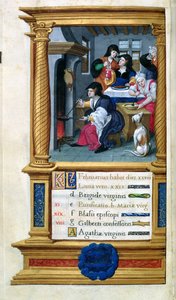 KL Februarius habet dies xxviii
Luna vero xxix
d Brigide virginis
xi e Purificatio b. Marie virg
xix f Blasii episcopi
viii g Gilberti confessoris
A Agathe virginis